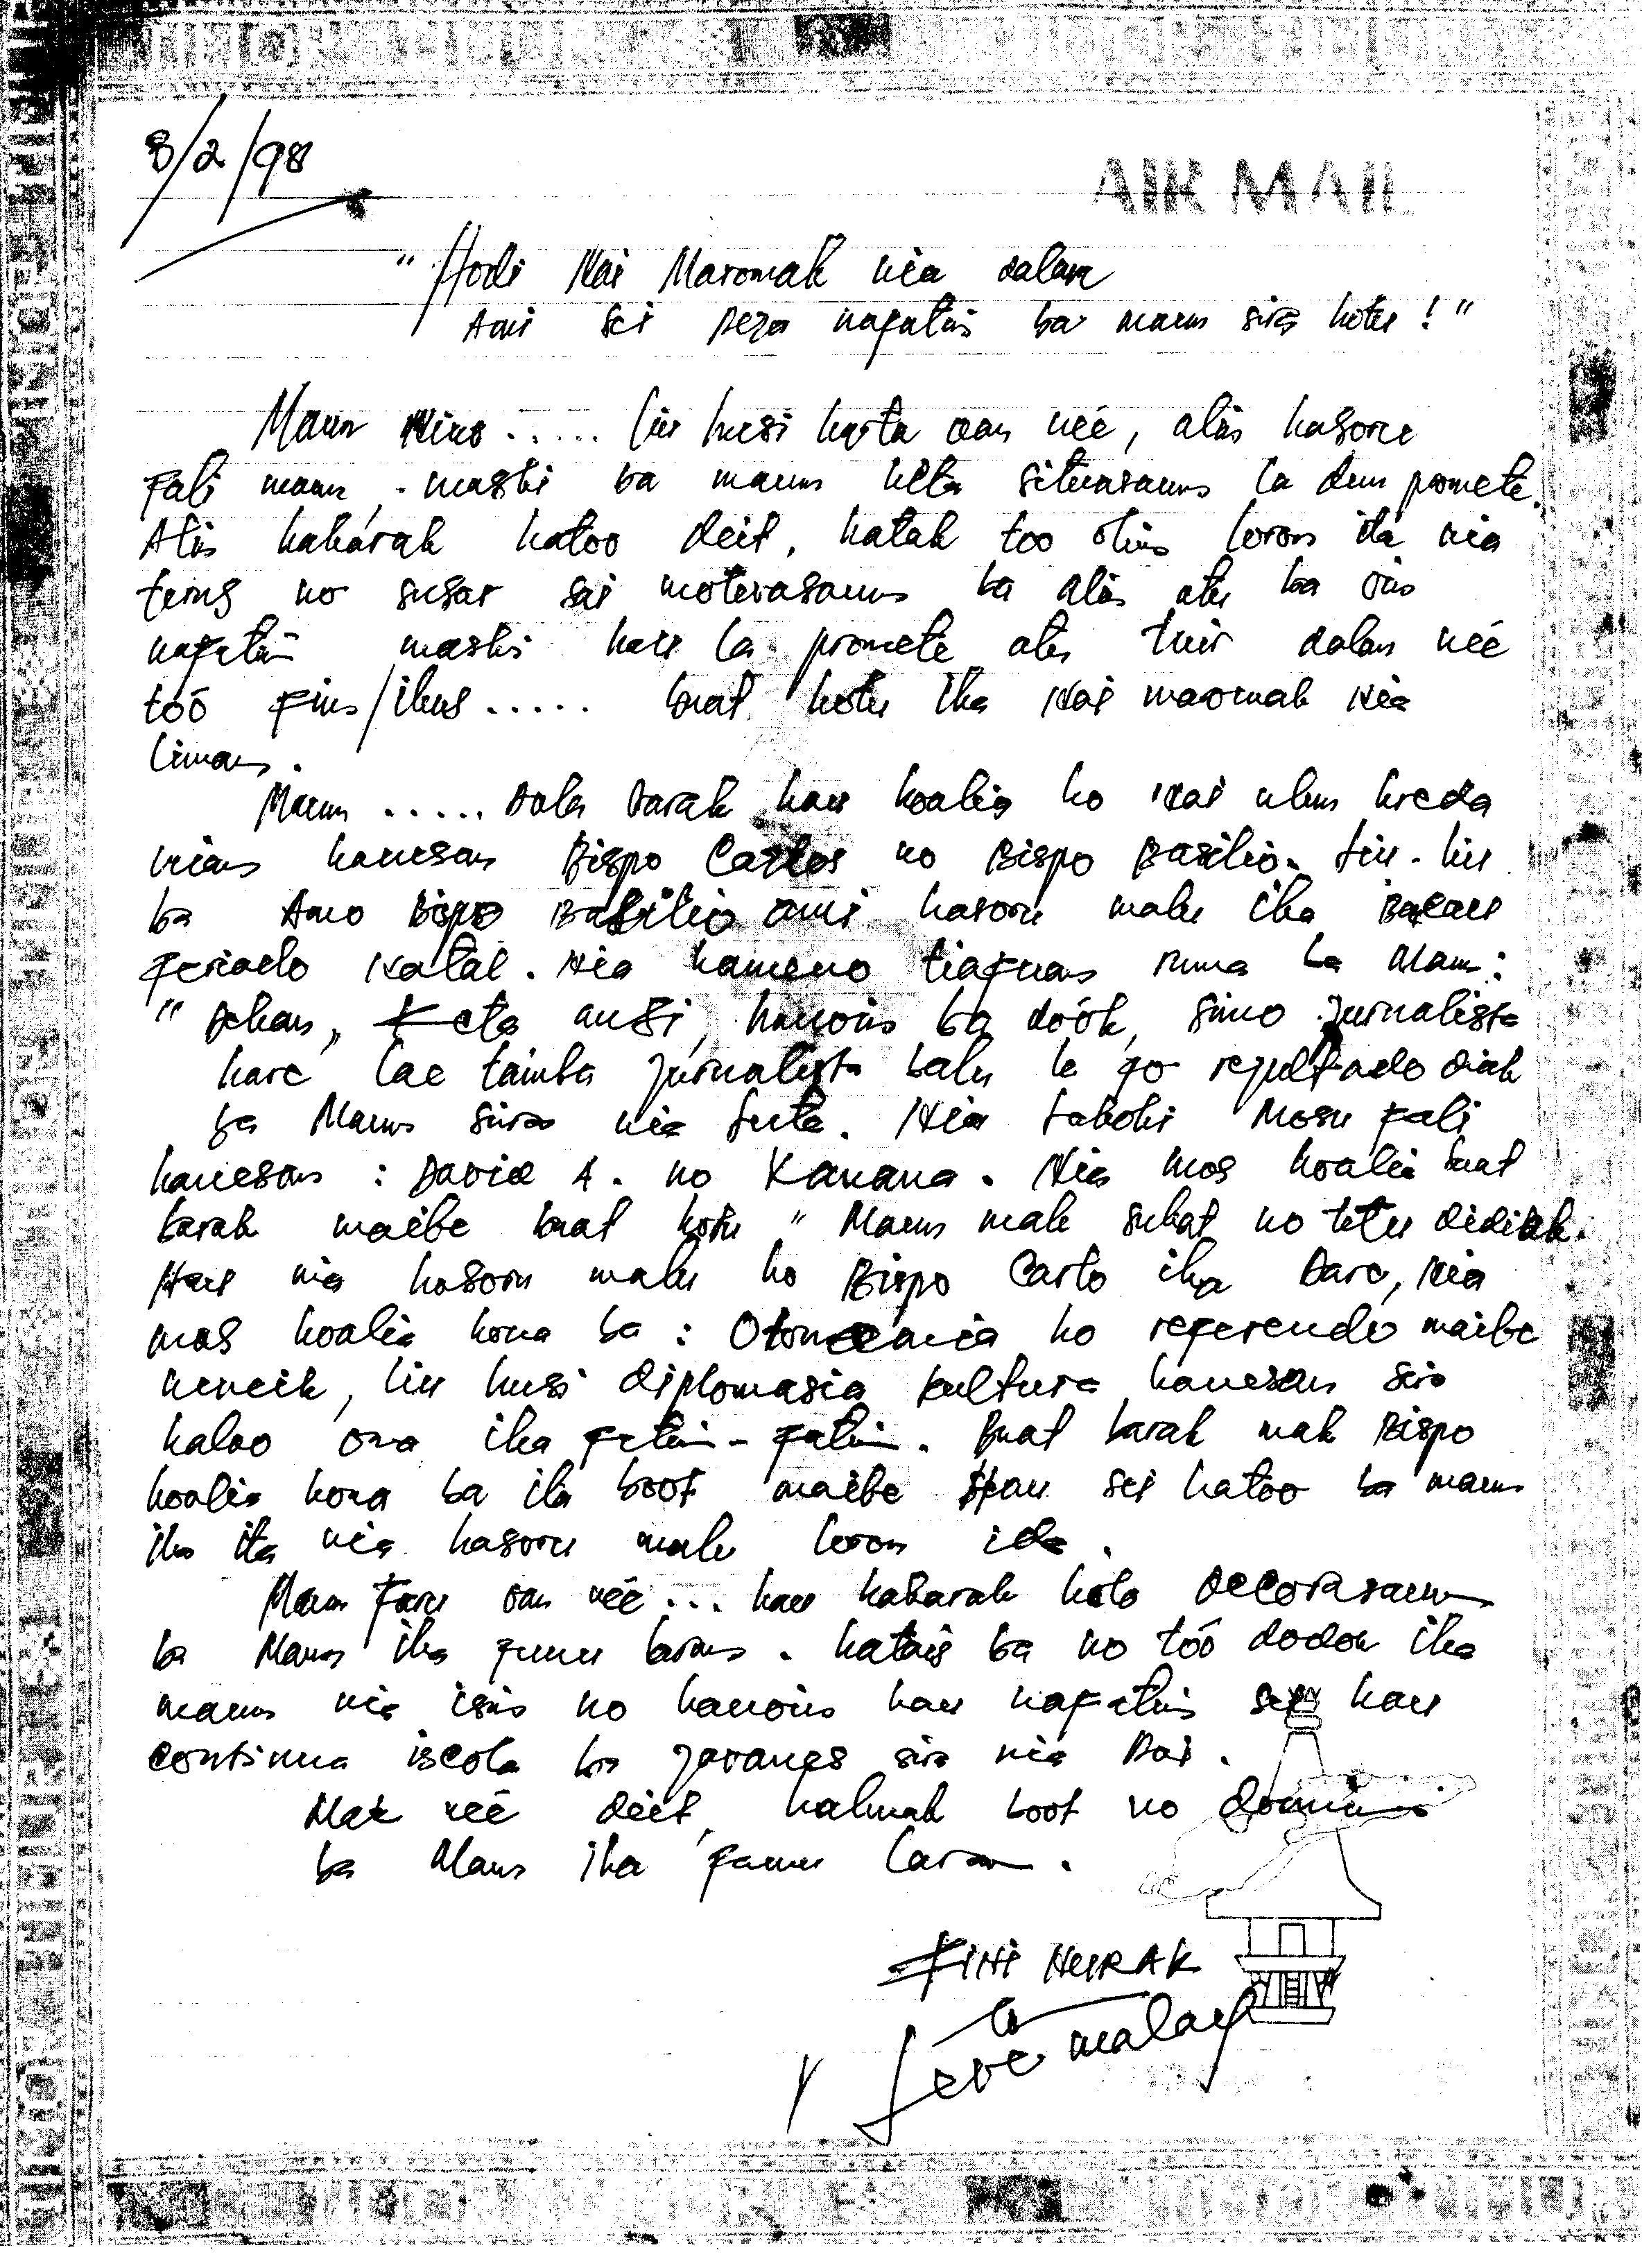 3/2/98
AIR MAIL
" Hodi Nai Maromak nia dalan
Ami sei reza nafatin ba maun sira hotu ! "
Maun Nino ..... liu husi karta oan neé, alin hasoru
fali maun, maski ba maun ita situasaun la dun promete.
Alin hakárak hatoo deit, katak too ohin loron ida nia
terus no susar sai motivasaun ba alin atu ba oin
nafatin maski hau la promete atu tuir dalan neé
tóó fin/ikus ..... buat hotu iha Nai maromak nia
liman.
Maun ..... dala barak hau koalia ho Nai ulun kreda
nian hanesan Bispo Carlos no Bispo Basilio. liu-liu
ba Amo Bispo Basilio ami hasoru malu iha Bacau
feriado Natal. Nia hameno liafuan ruma ba Maun :
" Dehan, Keta ansi, hanoin ba dóók, simo jurnalista
karé lae tamba jurnalista balu le fo rezultado diak
ba Maun sira nia luta. Nia taboki Mosu fali
hanesan : David A. no Xanana. Nia mos koalia buat
barak maibe buat hotu " Maun mak sukat no tetu didiak.
Hau nia hasoru malu ho Bispo Carlo iha Dare, nia
mos koalia kona ba : Otonomia ho referendo maibe
neneik, liu husi diplomasia kultura hanesan sira
halao ona iha fatin-fatin. Buat barak mak Bispo
koalia kona ba ida boot maibe hau sei hatoo ba maun
iha ita nia hasoru malu loron ida.
Maun faru oan neé ... hau hakarak halo decorasaun
ba Maun iha funu laran. hatais ba no tóó dodok iha
maun nia isin no hanoin hau nafatin sei hau
continua iscola ba javanes sira nia Rai.
Mak neé deit, hakuak boot no
ba Maun iha funu laran.
FIHI NURAK
Leve malae